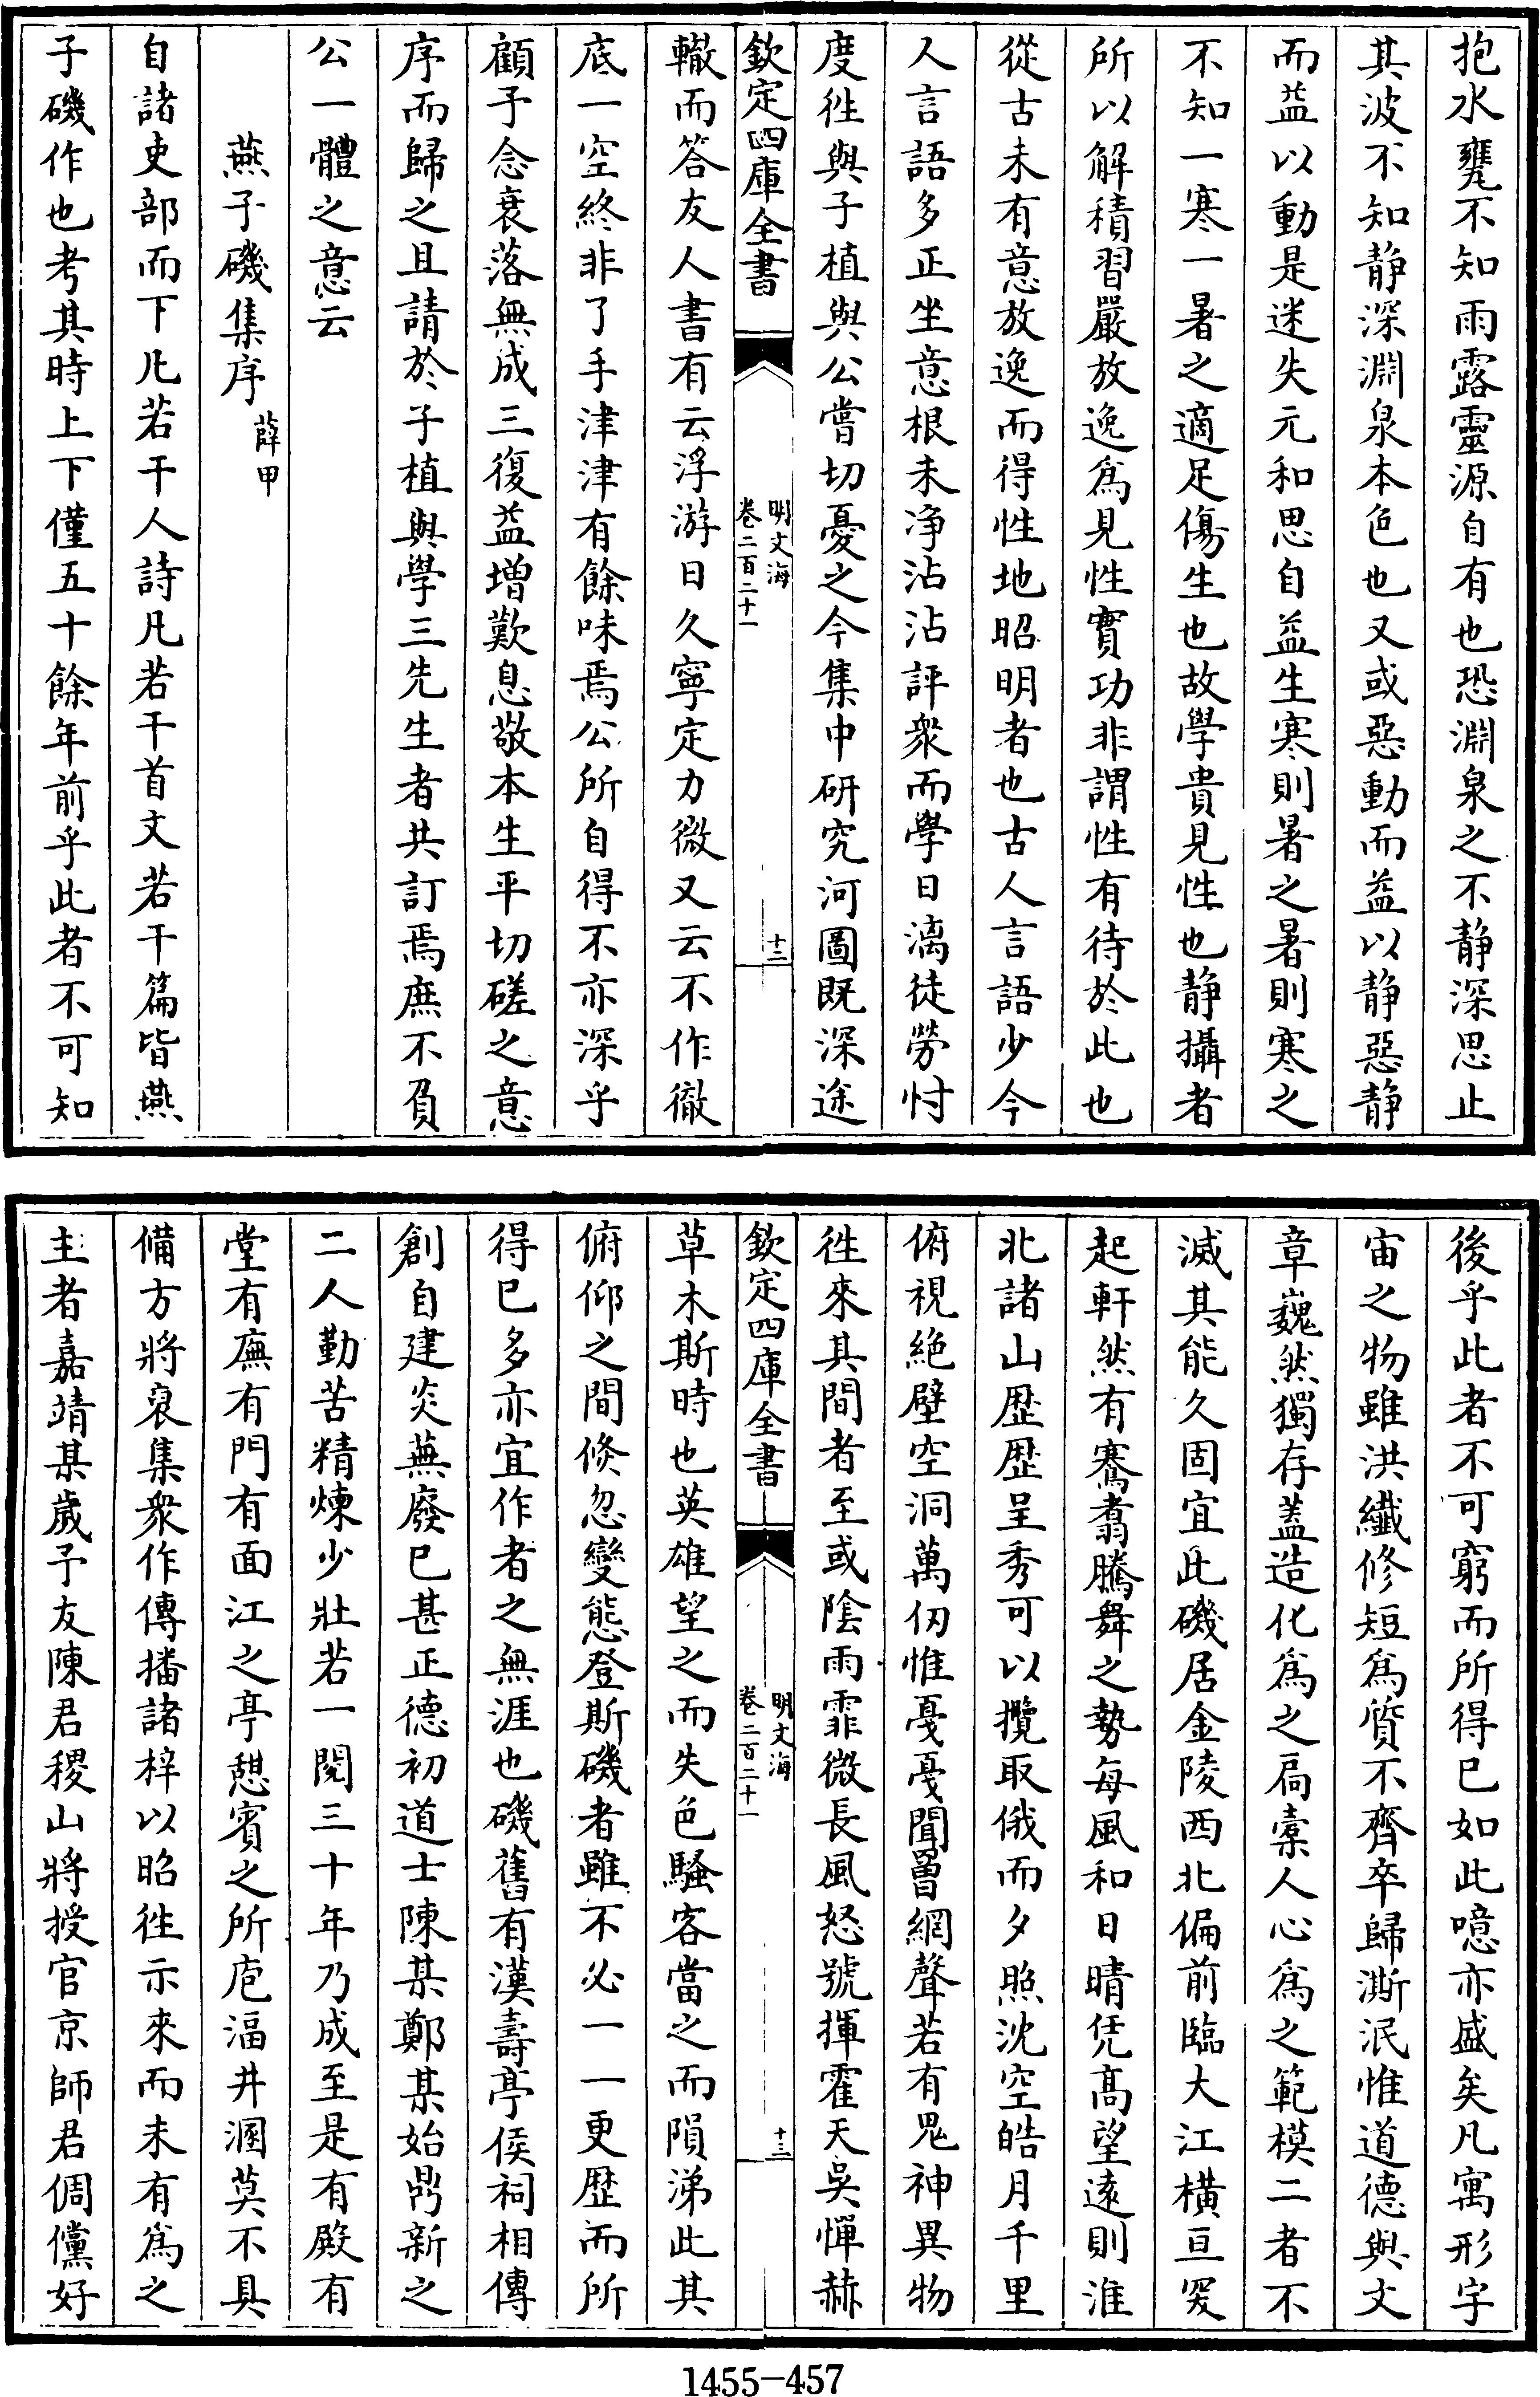 抱水甕不知雨露靈源自有也恐淵泉之不静深思止
其波不知静深淵泉本色也又或惡動而益以静惡静
而益以動是迷失元和思自益生寒則暑之暑則寒之
不知一寒一暑之適足傷生也故學貴見性也静攝者
所以解積習嚴放逸為見性實功非謂性有待於此也
從古未有意放逸而得性地昭明者也古人言語少今
人言語多正坐意根未净沾沾評衆而學日漓徒勞忖
度徃與子植與公嘗切憂之今集中研究河圖既深途
欽定四庫全書
明文海
卷二百二十一
十二
轍而答友人書有云浮游日久寧定力微又云不作徹
底一空終非了手津津有餘味焉公所自得不亦深乎
顧予念衰落無成三復益增歎息敬本生平切磋之意
序而歸之且請於子植與學三先生者共訂焉庶不負
公一體之意云
燕子磯集序薛甲
自諸吏部而下凡若干人詩凡若干首文若干篇皆燕
子磯作也考其時上下僅五十餘年前乎此者不可知
後乎此者不可窮而所得已如此噫亦盛矣凡寓形宇
宙之物雖洪纖修短為質不齊卒歸澌泯惟道德與文
章巍然獨存蓋造化為之扃橐人心為之範模二者不
滅其能久固宜此磯居金陵西北偏前臨大江横亘突
起軒然有騫翥騰舞之勢每風和日晴凭髙望遠則淮
北諸山歴歴呈秀可以攬取俄而夕照沈空皓月千里
俯視絶壁空洞萬仭惟戞戞聞罾網聲若有鬼神異物
徃來其間者至或隂雨霏微長風怒號揮霍天吳憚赫
欽定四庫全書
明文海
卷二百二十一
十三
草木斯時也英雄望之而失色騷客當之而隕涕此其
俯仰之間倐忽變態登斯磯者雖不必一一更歴而所
得已多亦宜作者之無涯也磯舊有漢壽亭侯祠相傳
創自建炎蕪廢已甚正德初道士陳某鄭某始鼎新之
二人勤苦精煉少壯若一閲三十年乃成至是有殿有
堂有廡有門有面江之亭憇賓之所庖湢井溷莫不具
備方將裒集衆作傳播諸梓以昭徃示來而未有為之
主者嘉靖某歲予友陳君稷山將授官京師君倜儻好
1455-457